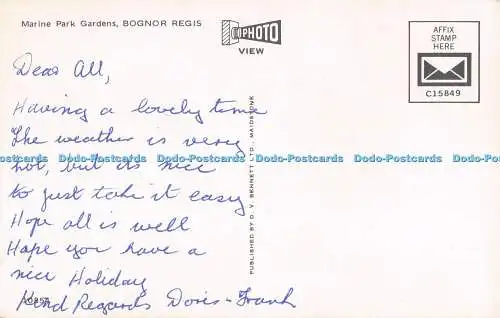 Marine Park Gardens, BOGNOR REGIS
COPHOTO
VIEW
AFFIX
STAMP
HERE
C15849
Dear All,
Having a lovely time
The weather is very
hot, but its nice
to just take it easy
Hope all is well
Hope you have a
nice Holiday
Kind Regards Doris - Frank
PUBLISHED BY D. V. BENNETT LTD., MAIDSTONE
Dodo-Postcards Dodo-Postcards Dodo-Postcards Dodo-Postcards Dodo-Postcards